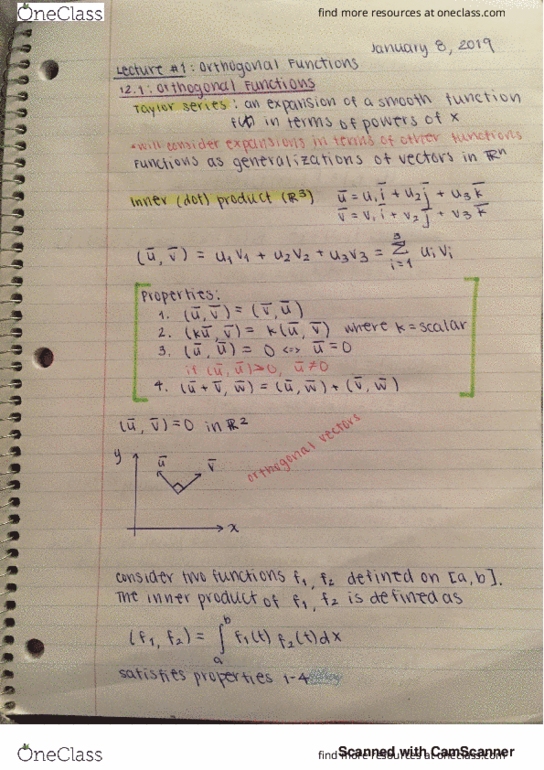 OneClass
find more resources at oneclass.com
January 8, 2019
Lecture #1: Orthogonal Functions
12.1: Orthogonal Functions
Taylor series: an expansion of a smooth function
f(x) in terms of powers of x
*will consider expansions in terms of other functions
Functions as generalizations of vectors in ℝⁿ
Inner (dot) product (ℝ³) ū = u₁i̅ + u₂j̅ + u₃k̅
v̅ = v₁i̅ + v₂j̅ + v₃k̅
(ū, v̅) = u₁v₁ + u₂v₂ + u₃v₃ = ∑ᵢ₌₁³ uᵢvᵢ
Properties:
1. (ū, v̅) = (v̅, ū)
2. (kū, v̅) = k(ū, v̅) where k = scalar
3. (ū, ū) = 0 <=> ū = 0
if (ū, ū) > 0, ū ≠ 0
4. (ū + v̅, w̅) = (ū, w̅) + (v̅, w̅)
(ū, v̅) = 0 in ℝ²
orthogonal vectors
y ū v̅
x
consider two functions f₁, f₂ defined on [a, b].
The inner product of f₁, f₂ is defined as
(f₁, f₂) = ∫ₐᵇ f₁(t) f₂(t) dx
satisfies properties 1-4
OneClass
find more resources at oneclass.com
Scanned with CamScanner